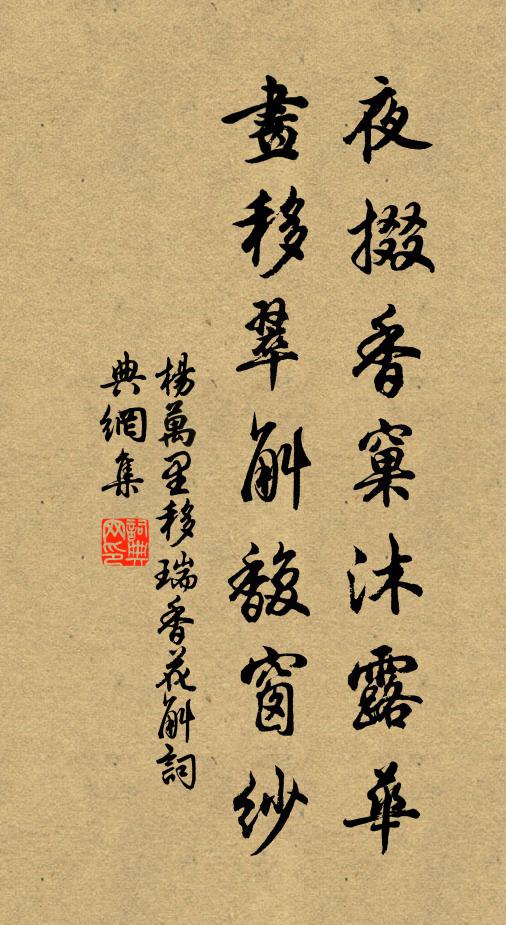 夜掇香窠沐露華
晝移翠斛馥窗紗
楊萬里移瑞香花斛詞
典網集
詞典網印